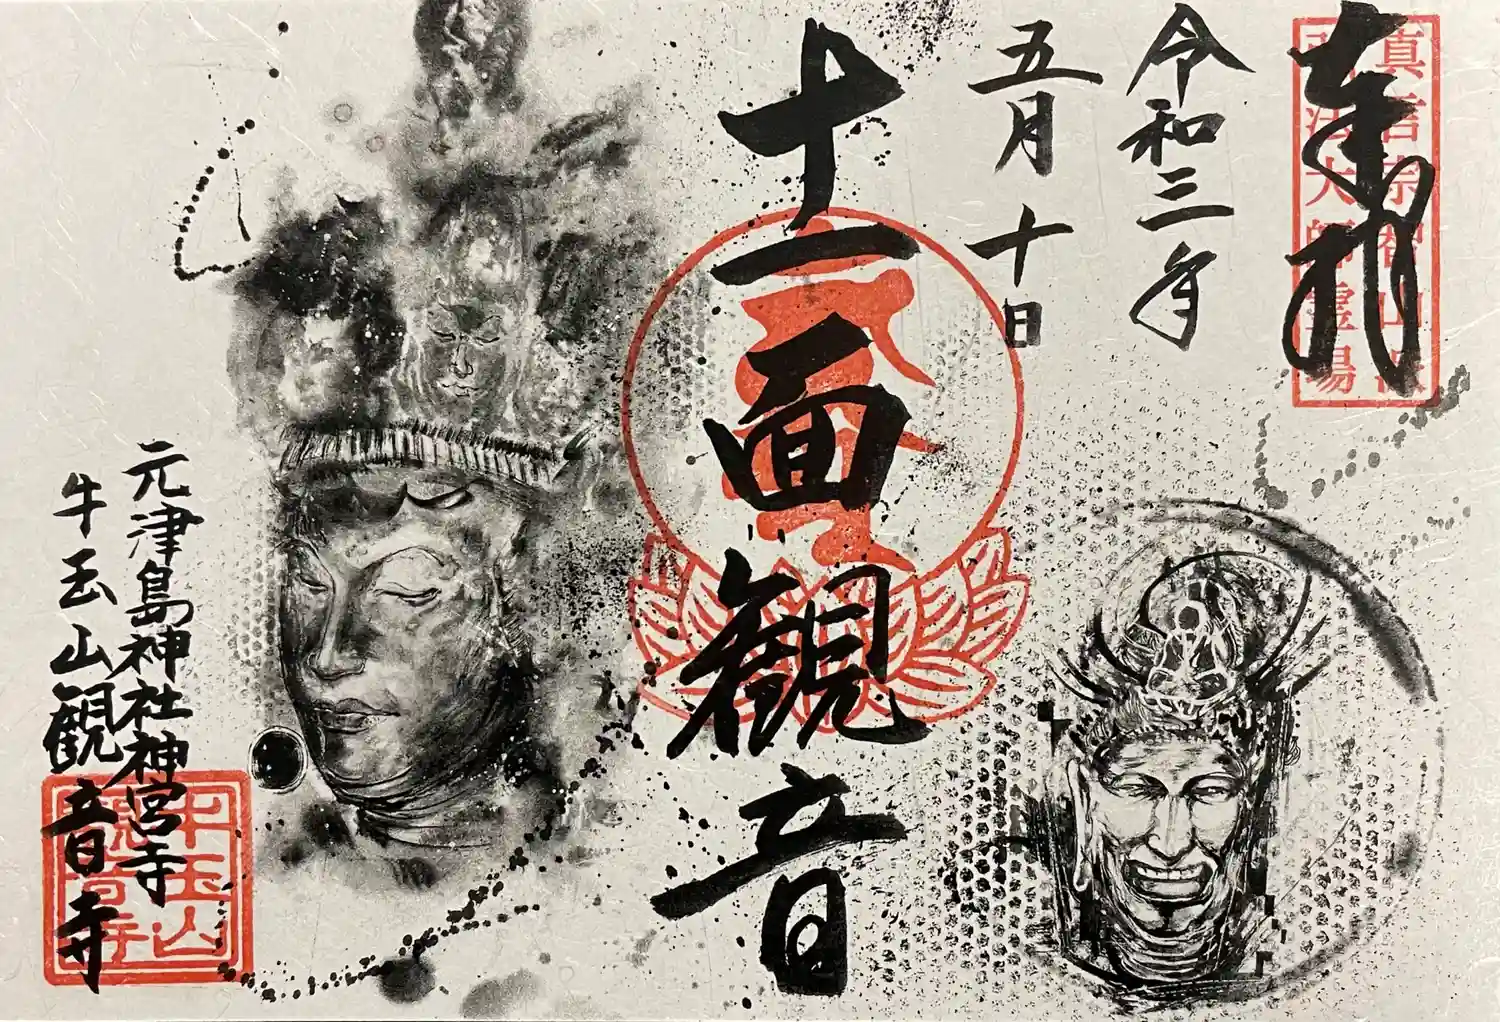 奉拝
真言宗智山派
弘法大師霊場
令和三年
五月十日
十一面観音
元津島神社神宮寺
牛玉山観音寺
牛玉山
観音寺